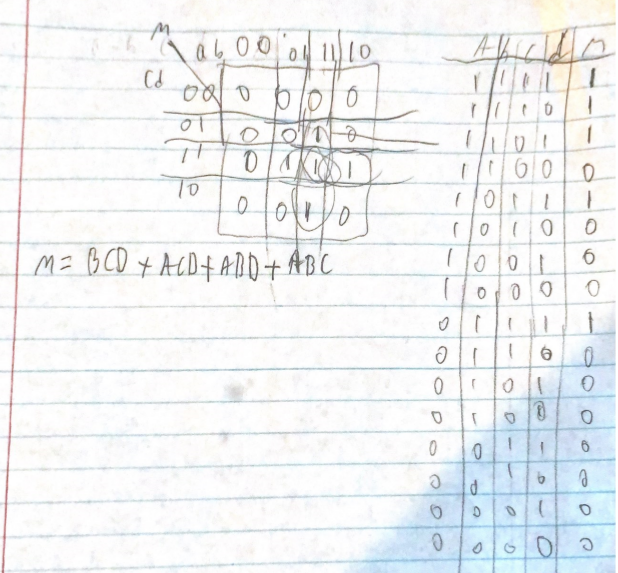 M ab 00 01 11 10
Cd
00 0 0 0 0
01 0 0 1 0
11 0 1 1 1
10 0 0 1 0
M = BCD + ACD + ABD + ABC
A b C d M
1 1 1 1 1
1 1 1 0 1
1 1 0 1 1
1 1 0 0 0
1 0 1 1 1
1 0 1 0 0
1 0 0 1 0
1 0 0 0 0
0 1 1 1 1
0 1 1 0 0
0 1 0 1 0
0 1 0 0 0
0 0 1 1 0
0 0 1 0 0
0 0 0 1 0
0 0 0 0 0